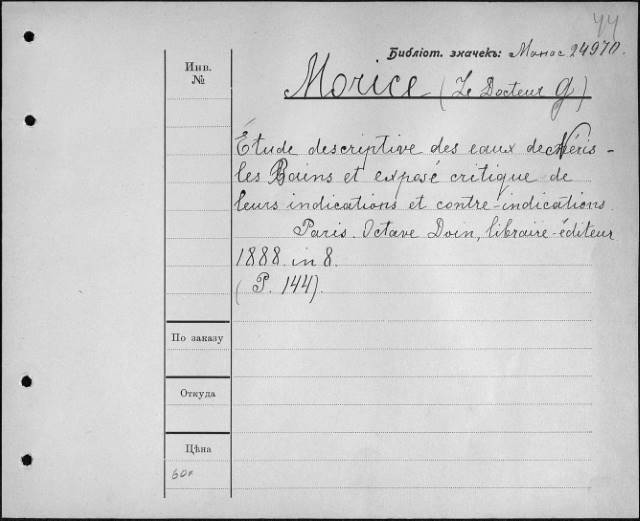 44
Библіот. значекъ: Манас 24970.
Инв.
№
Morice (Le Docteur G)
Étude descriptive des eaux de Néris-
les Bains et exposé critique de
leurs indications et contre-indications.
Paris. Octave Doin, libraire-éditeur
1888. in 8.
(P. 144).
По заказу
Откуда
Цѣна
60к